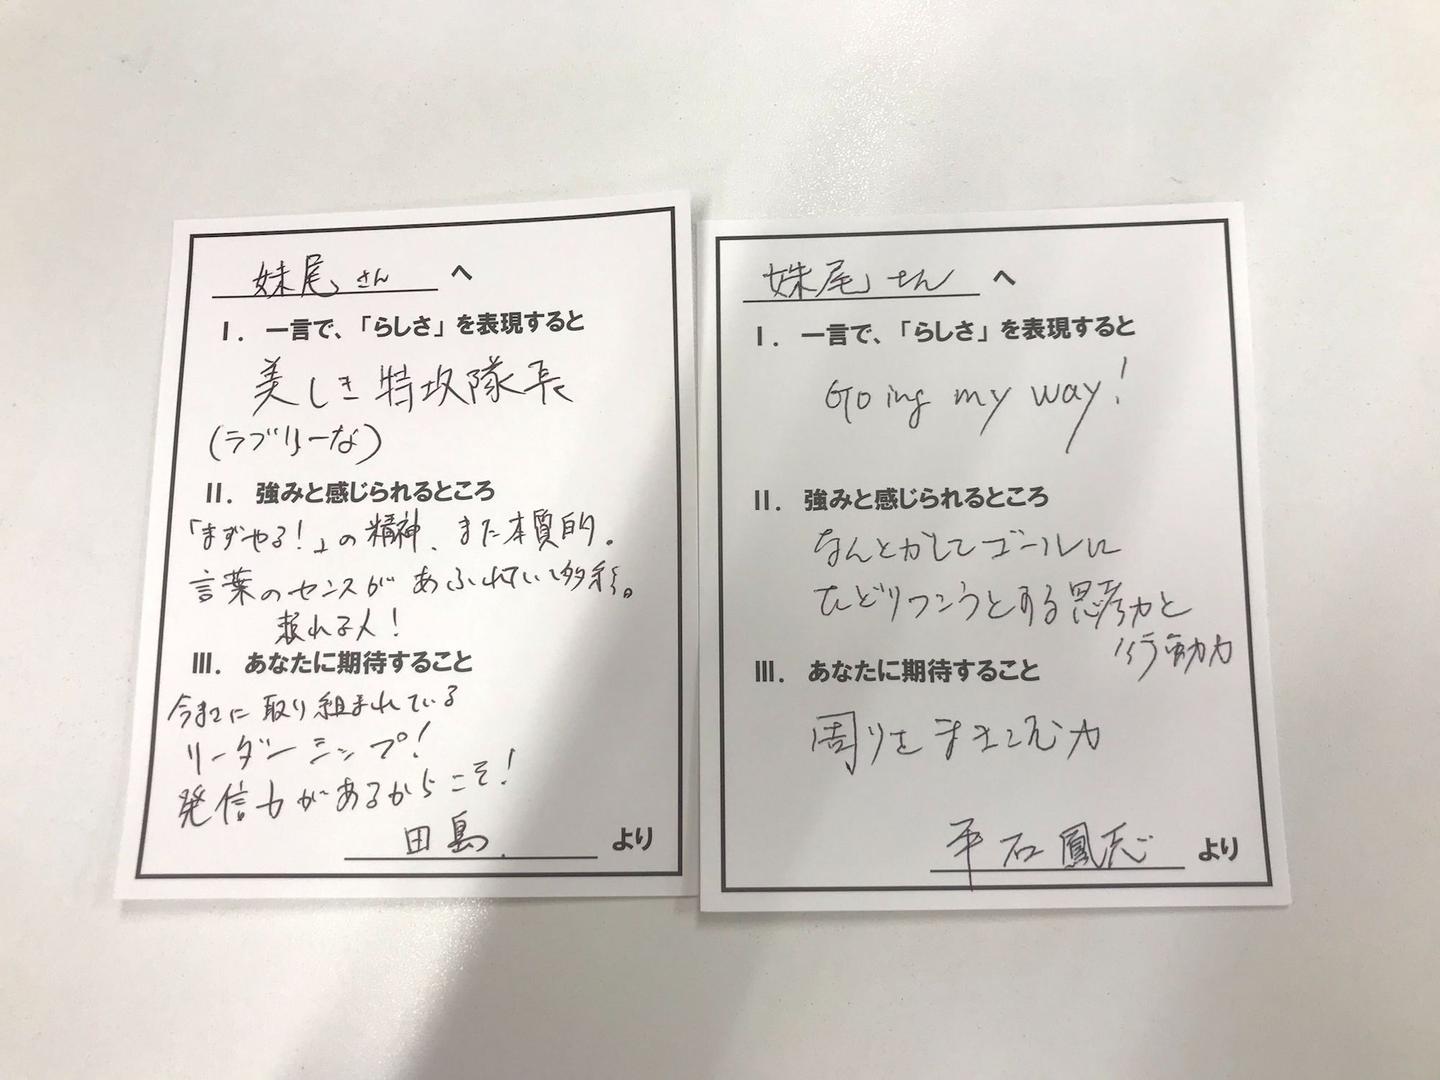 妹尾さん へ
Ⅰ. 一言で、「らしさ」を表現すると
美しき特攻隊長
(ラブリーな)
Ⅱ. 強みと感じられるところ
「まずやる!」の精神、また本質的。
言葉のセンスがあふれてい多彩。
頼れる人!
Ⅲ. あなたに期待すること
今までに取り組まれている
リーダーシップ!
発信力があるからこそ!
田島. より
妹尾さん へ
Ⅰ. 一言で、「らしさ」を表現すると
Going my way!
Ⅱ. 強みと感じられるところ
なんとかしてゴールに
たどりつこうとする思考力と
行動力
Ⅲ. あなたに期待すること
周りをまきこむ力
平石鳳志 より